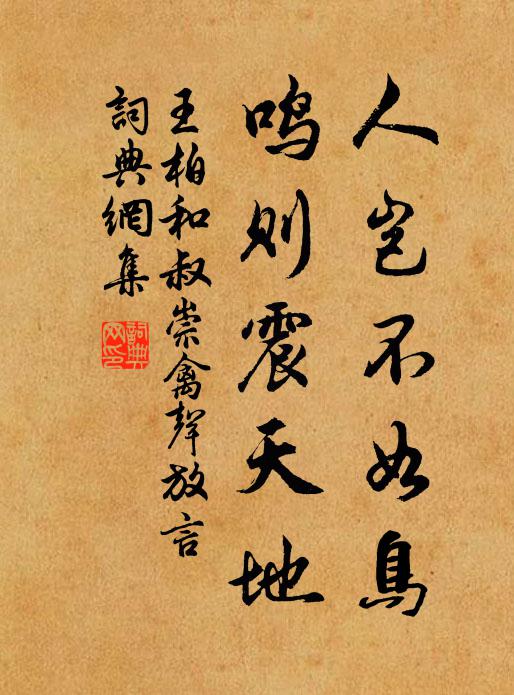 人岂不如鸟
鸣则震天地
王柏和叔崇禽聲放言
詞典網集
詞典网印